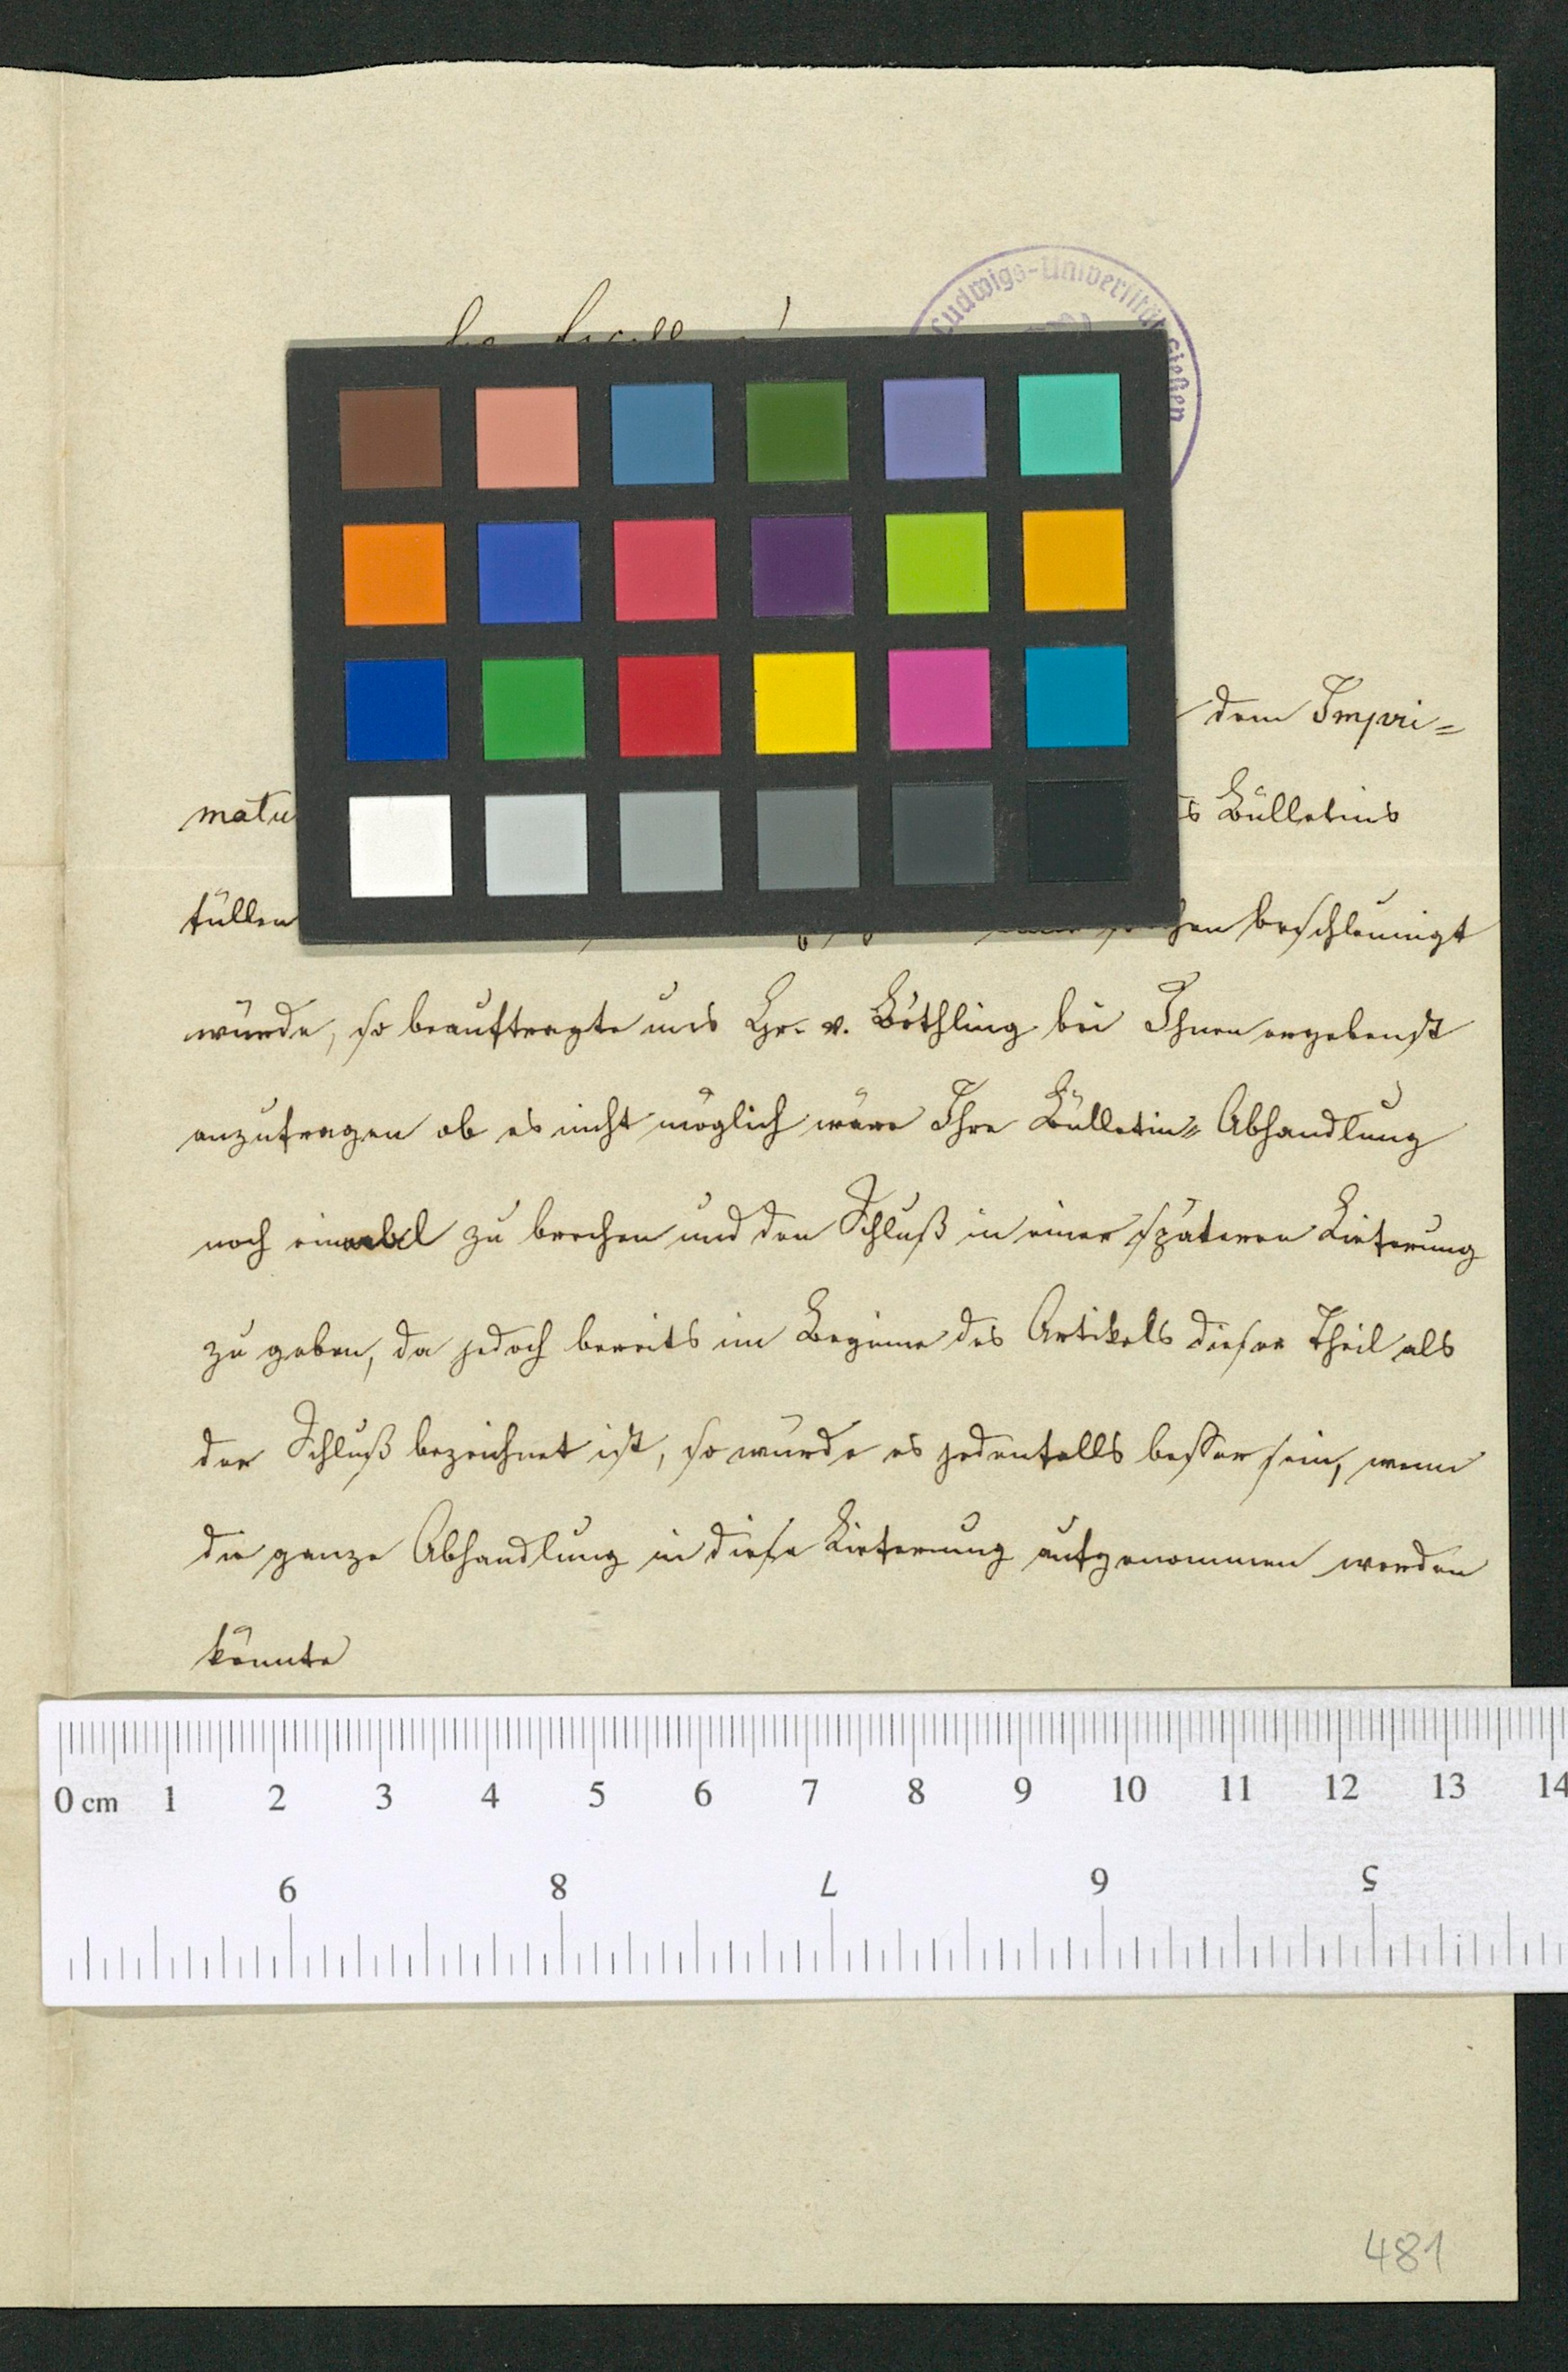 Ludwigs-Universität Gießen
dem Impri=
matu
s Bülletins
füllen
hen beschleunigt
würde, so beauftragte uns Hr. v. Böthling bei Ihnen ergebenst
anzufragen ob es nicht möglich wäre Ihre Bülletin= Abhandlung
noch einmal zu brechen und den Schluß in einer späteren Lieferung
zu geben, da jedoch bereits im Beginne des Artikels dieser Theil als
der Schluß bezeichnet ist, so würde es jedenfalls besser sein, wenn
die ganze Abhandlung in diese Lieferung aufgenommen werden
könnte
0 cm 1 2 3 4 5 6 7 8 9 10 11 12 13 14
9 8 7 6 5
481